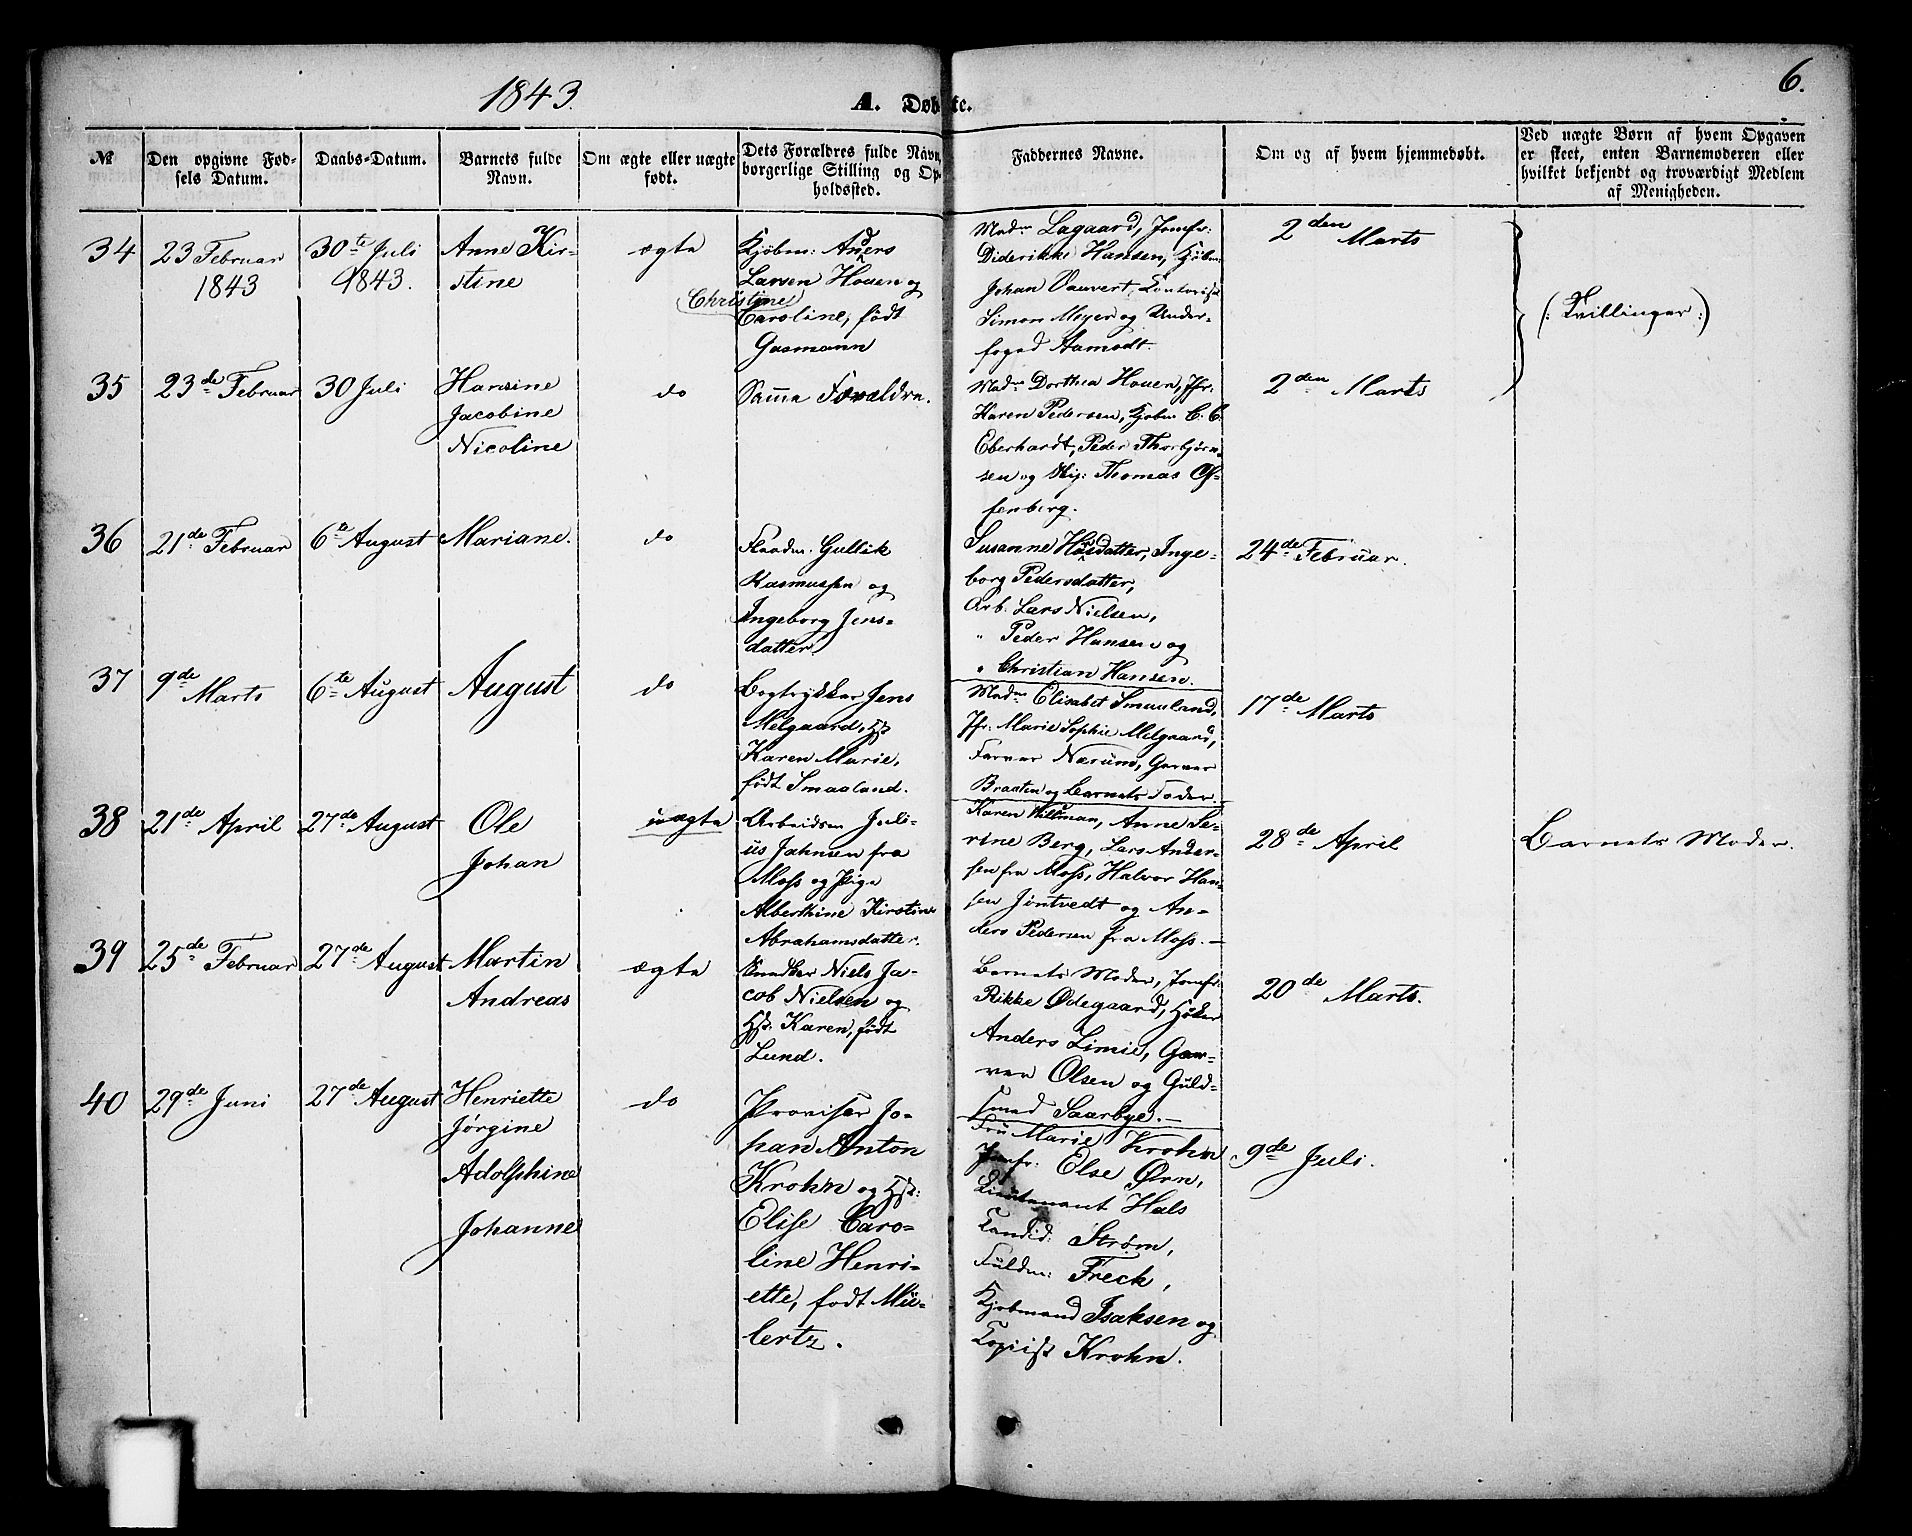 1843.
A. Døbte.
6.
№
Den opgivne Fød-
sels Datum.
Daabs-Datum.
Barnets fulde
Navn.
Om ægte eller uægte
født.
Dets Forældres fulde Navn,
borgerlige Stilling og Op-
holdssted.
Faddernes Navne.
Om og af hvem hjemmedøbt.
Ved uægte Børn af hvem Opgaven
er skeet, enten Barnemoderen eller
hvilket bekjendt og troværdigt Medlem
af Menigheden.
34
23 Februar
1843
30te Juli
1843.
Anne Kir-
stine
ægte
Kjøbm: Anders
Larsen Houen og
Christine
Caroline, født
Gasmann
Madm Lagaard, Jomfr:
Diderikke Hansen, Kjøbm:
Johan Vauvert, Contorist
Simon Meyer og Under-
foged Aamodt.
2den Marts
(: Tvillinger :)
35
23de Februar
30 Juli
Hansine
Jacobine
Nicoline
do
Samme Forældre.
Madm Dorthea Houen, Jfr:
Karen Pedersen, Kjøbm C. C.
Eberhardt, Peder Thorbjørn-
sen og Thomas Of-
fenberg.
2den Marts
36
21de Februar
6te August
Mariane.
do
Gullik
Rasmussen og
Ingeborg Jens-
datter.
Susanne Hansdatter, Inge-
borg Pedersdatter,
Arb. Lars Nielsen,
" Peder Hansen og
" Christian Hansen.
24de Februar.
37
9de
Marts
6te August
August
do
Bogtrykker Jens
Melgaard, Hst
Karen Marie,
født Smaaland.
Madm Elisabet Smaaland,
Jfr: Marie Sophie Melgaard,
Farver Nærum, Garver
Braaten og Barnets Fader.
17de Marts
38
21de April
27de August
Ole
Johan
uægte
Arbeidsm Juli-
us Jahnsen fra
Moss og Pige
Alberthine Kirstine
Abrahamsdatter.
Karen Willman, Anne Se-
rine Berg, Lars Ander-
sen fra Moss, Halvor Han-
sen Jøntvedt og An-
ders Pedersen fra Moss.
28de April
Barnets Moder.
39
25de Februar
27de August
Martin
Andreas
ægte
Snedker Niels Ja-
cob Nielsen og
Hst: Karen, født
Lund.
Barnets Moder, Jomfr:
Rikke Ødegaard, Høker
Anders Limie, Gar-
ver Olsen og Guld-
smed Saarbye.
20de Marts.
40
29de Juni
27de August
Henriette
Jørgine
Adolphine
Johanne
do
Provisor Jo-
han Anton
Krohn og Hst:
Elise Caro-
line Henri-
ette, født Mü-
lertz.
Fru Marie Krohn
Jomfr: Else Ørn,
Lieutenant Hals
Candid: Strøm,
Fuldm: Freck,
Kjøbmand Isaksen og
Copiist Krohn.
9de Juli.